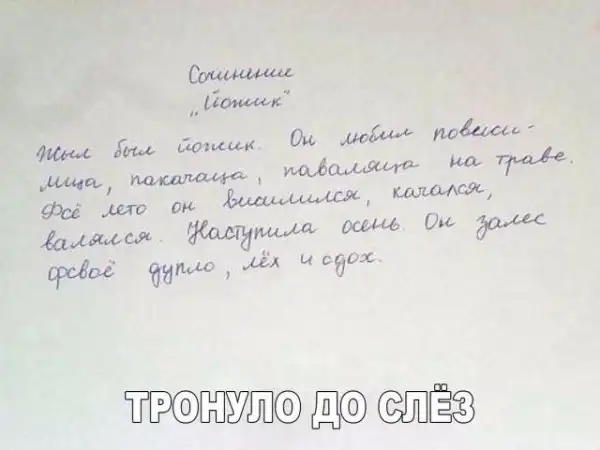 Сочинение
„Йожик"
Жыл был йожик. Он любил повесили-
лица, пакачаца, паваляца на траве.
Фсё лето он висилился, качался,
валялся. Наступила осень. Он залес
фсваё дупло, лёх и сдох.
ТРОНУЛО ДО СЛЁЗ